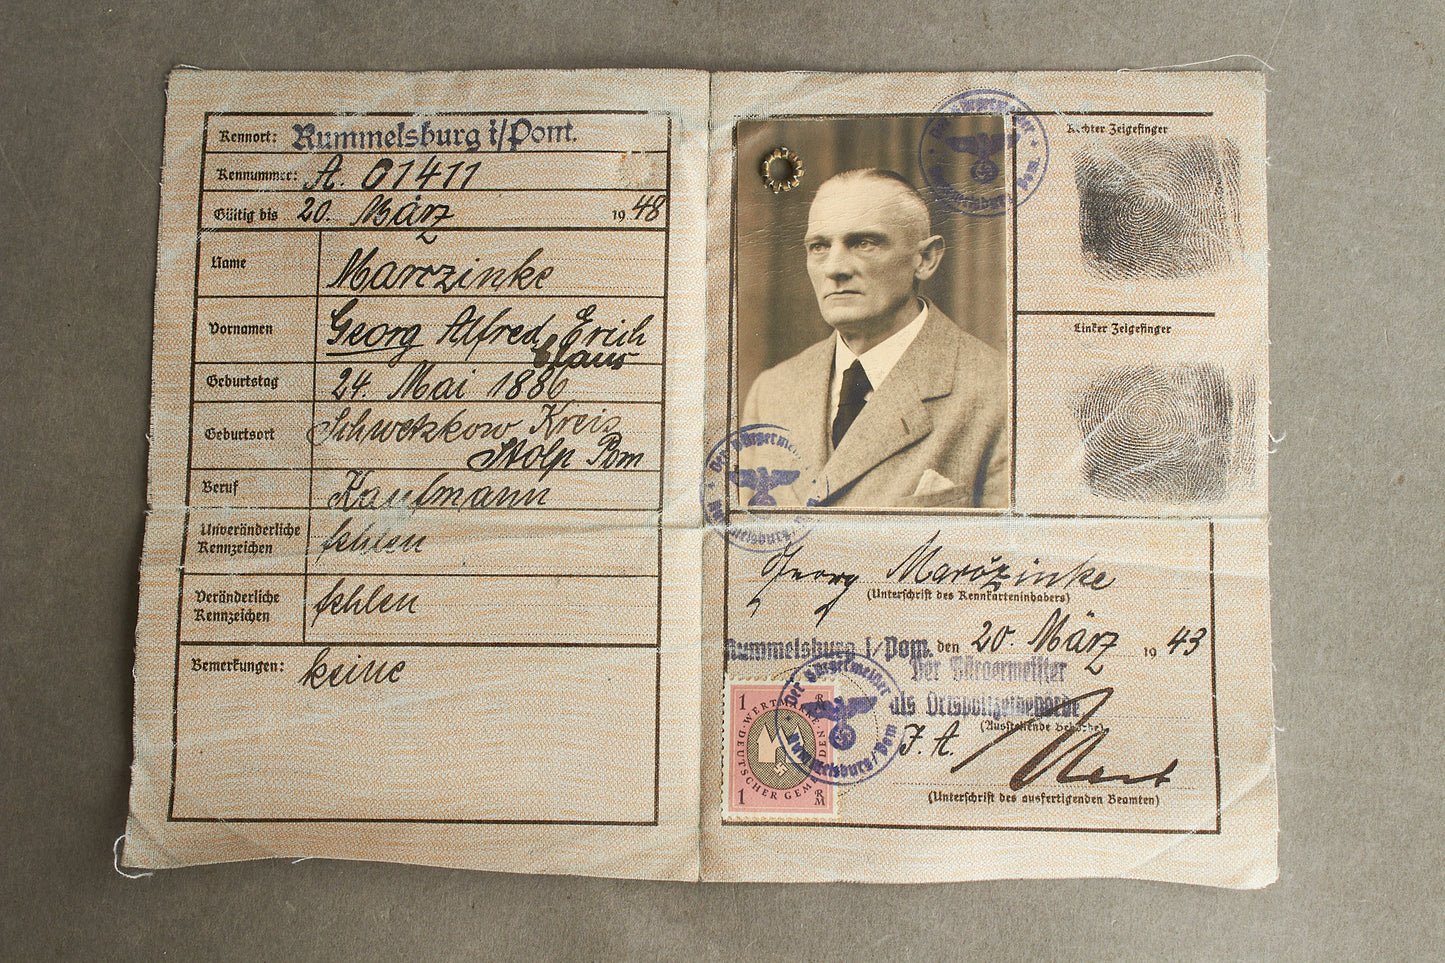 Kennort: Rummelsburg i/Pom.
Kennummer: A. 01411
Gültig bis 20. März 1948
Name Marczinke
Vornamen Georg Alfred Erich
Claus
Geburtstag 24. Mai 1886
Geburtsort Schwetzkow Kreis
Stolp Pom
Beruf Kaufmann
Unveränderliche
Kennzeichen fehlen
Veränderliche
Kennzeichen fehlen
Bemerkungen: keine
Der Bürgermeister
Rummelsburg Pom.
Rechter Zeigefinger
Linker Zeigefinger
Der Bürgermeister
Rummelsburg/Pom
Georg Marczinke
(Unterschrift des Kennkarteninhabers)
Rummelsburg i/Pom. den 20. März 1943
Der Bürgermeister
als Ortspolizeibehörde
(Ausstellende Behörde)
J. A.
(Unterschrift des ausfertigenden Beamten)
Der Bürgermeister
Rummelsburg/Pom
1 RM
WERTMARKE
DEUTSCHER GEMEINDEN
1 RM